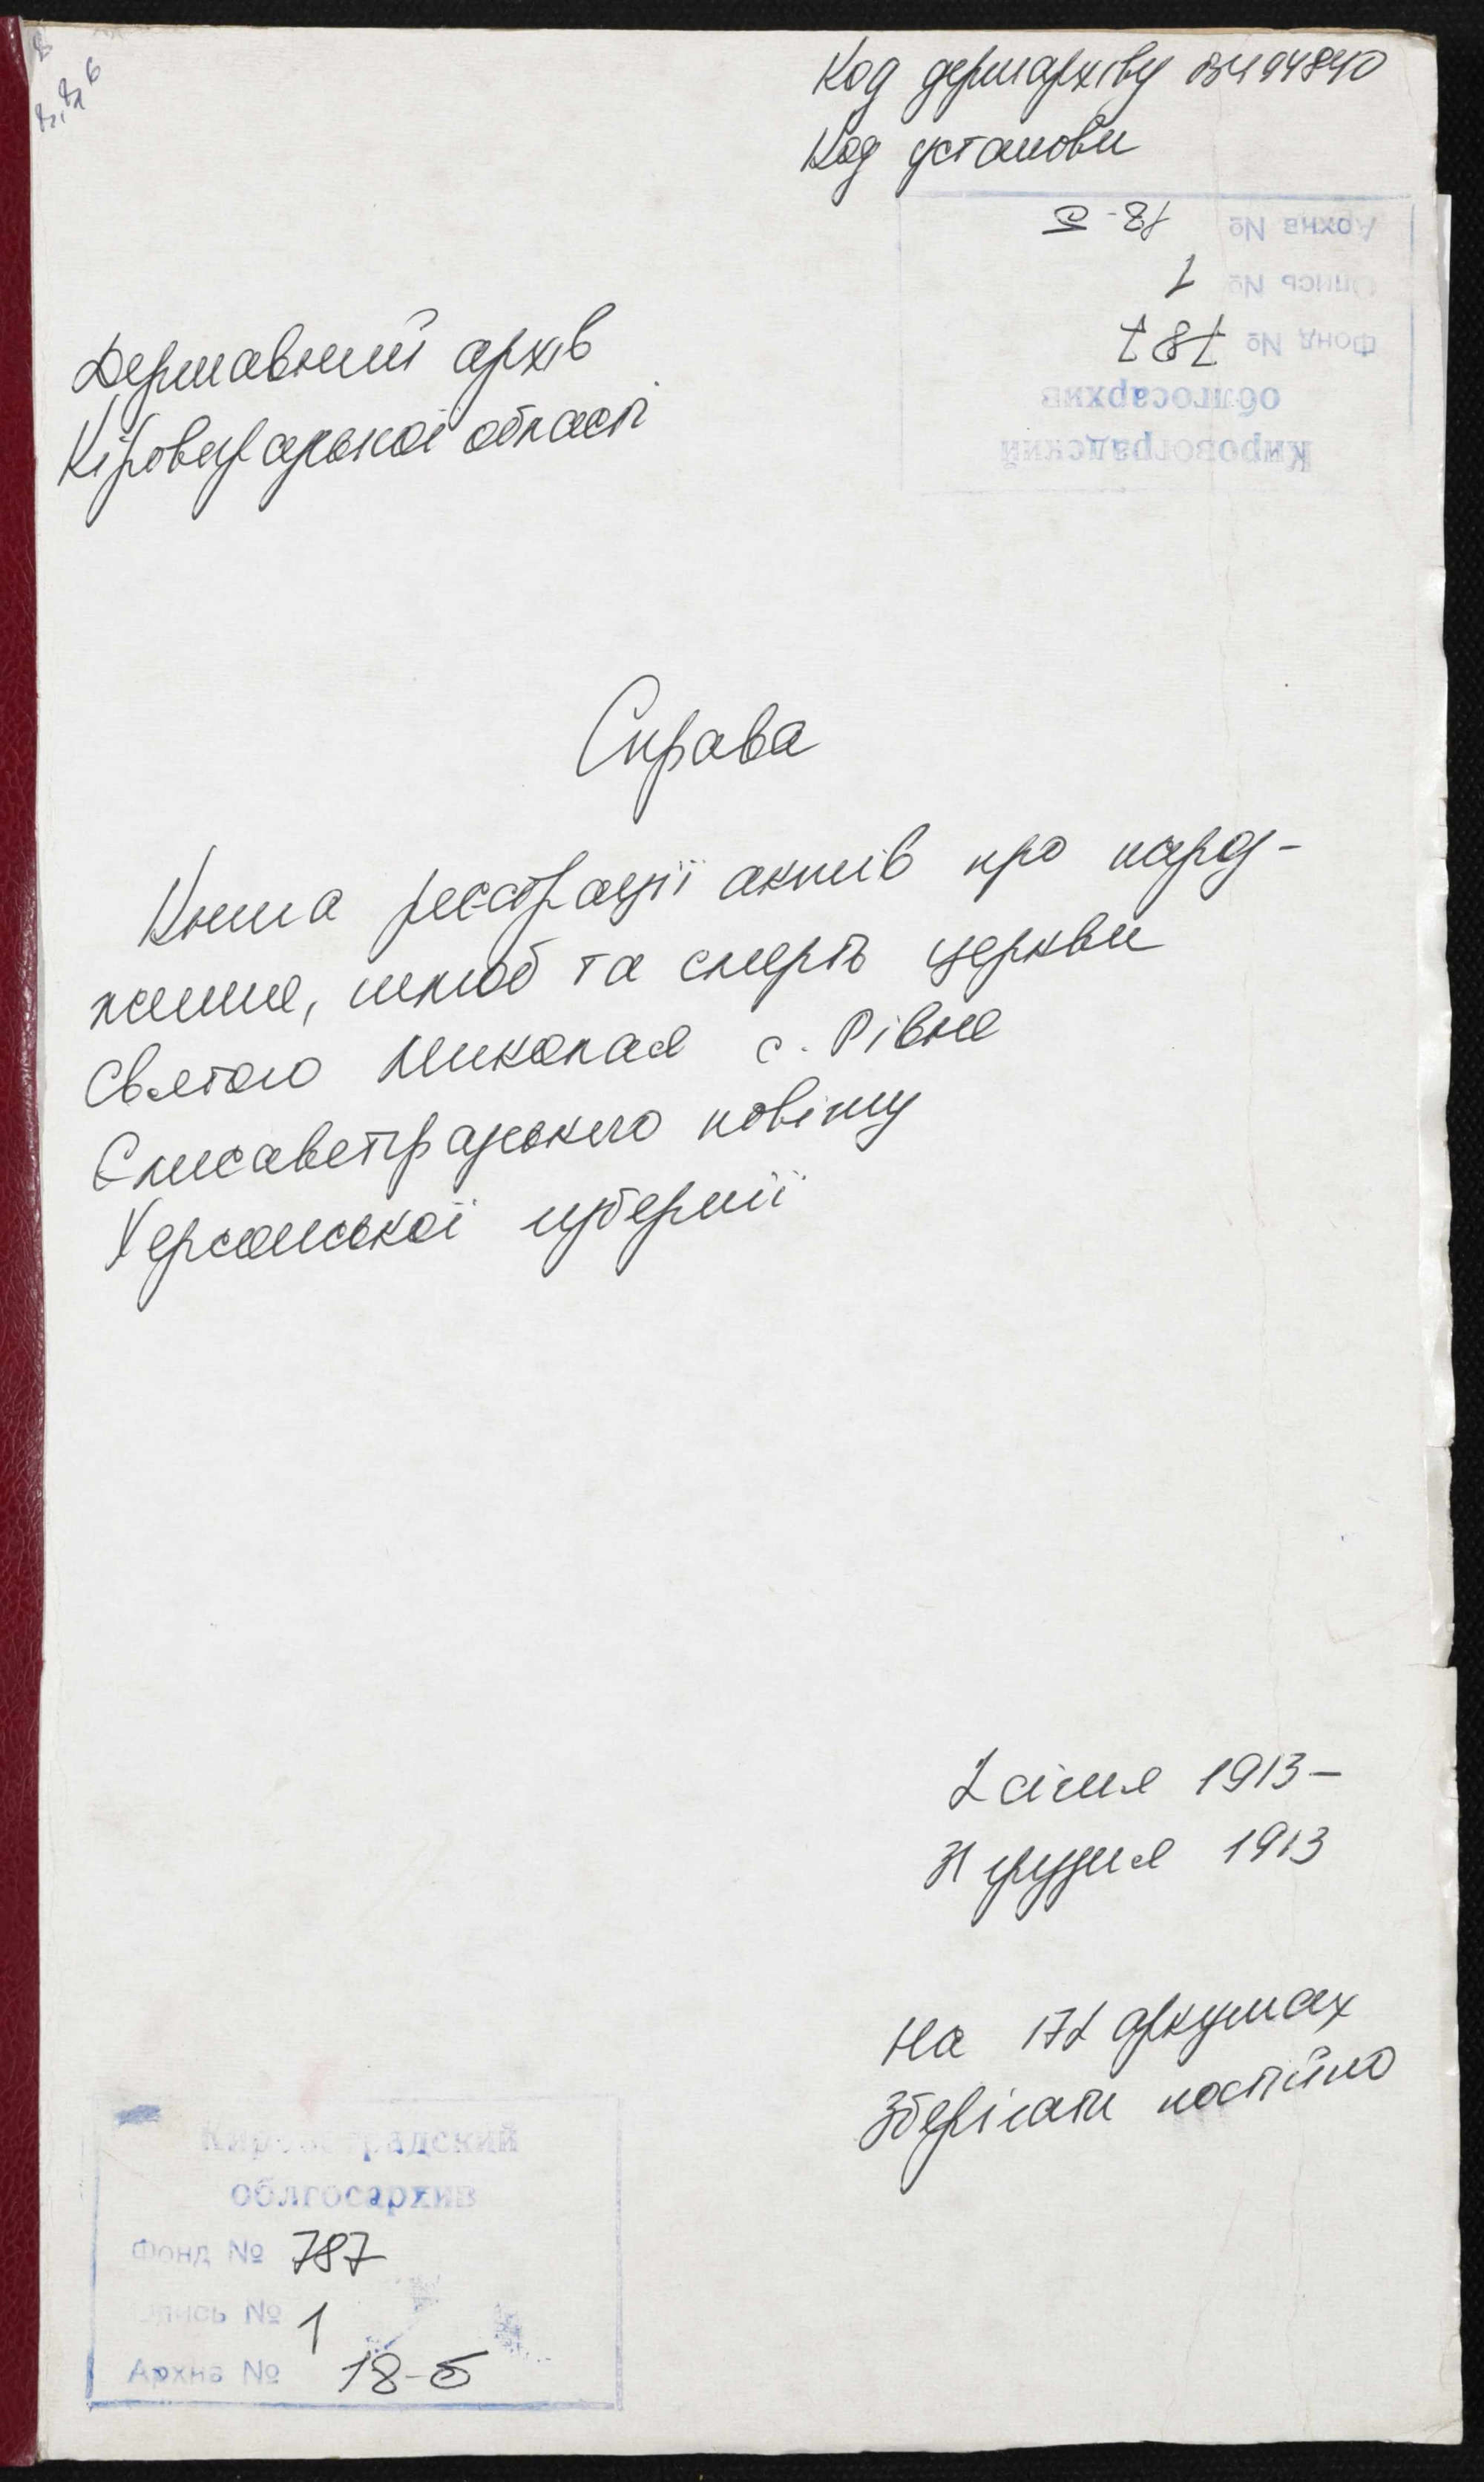 Код держархіву 03494840
Код установи
Архив № 18-б
Опись № 1
Фонд № 787
облгосархив
Кировоградский
Державний архів
Кіровоградської області
Справа
Книга реєстрації актів про народ-
ження, шлюб та смерть церкви
Святого Миколая с. Рівне
Єлисаветградського повіту
Херсонської губернії
2 січня 1913 –
31 грудня 1913
На 172 аркушах
Зберігати постійно
Кировоградский
облгосархив
Фонд № 787
Опись № 1
Архив № 18-б